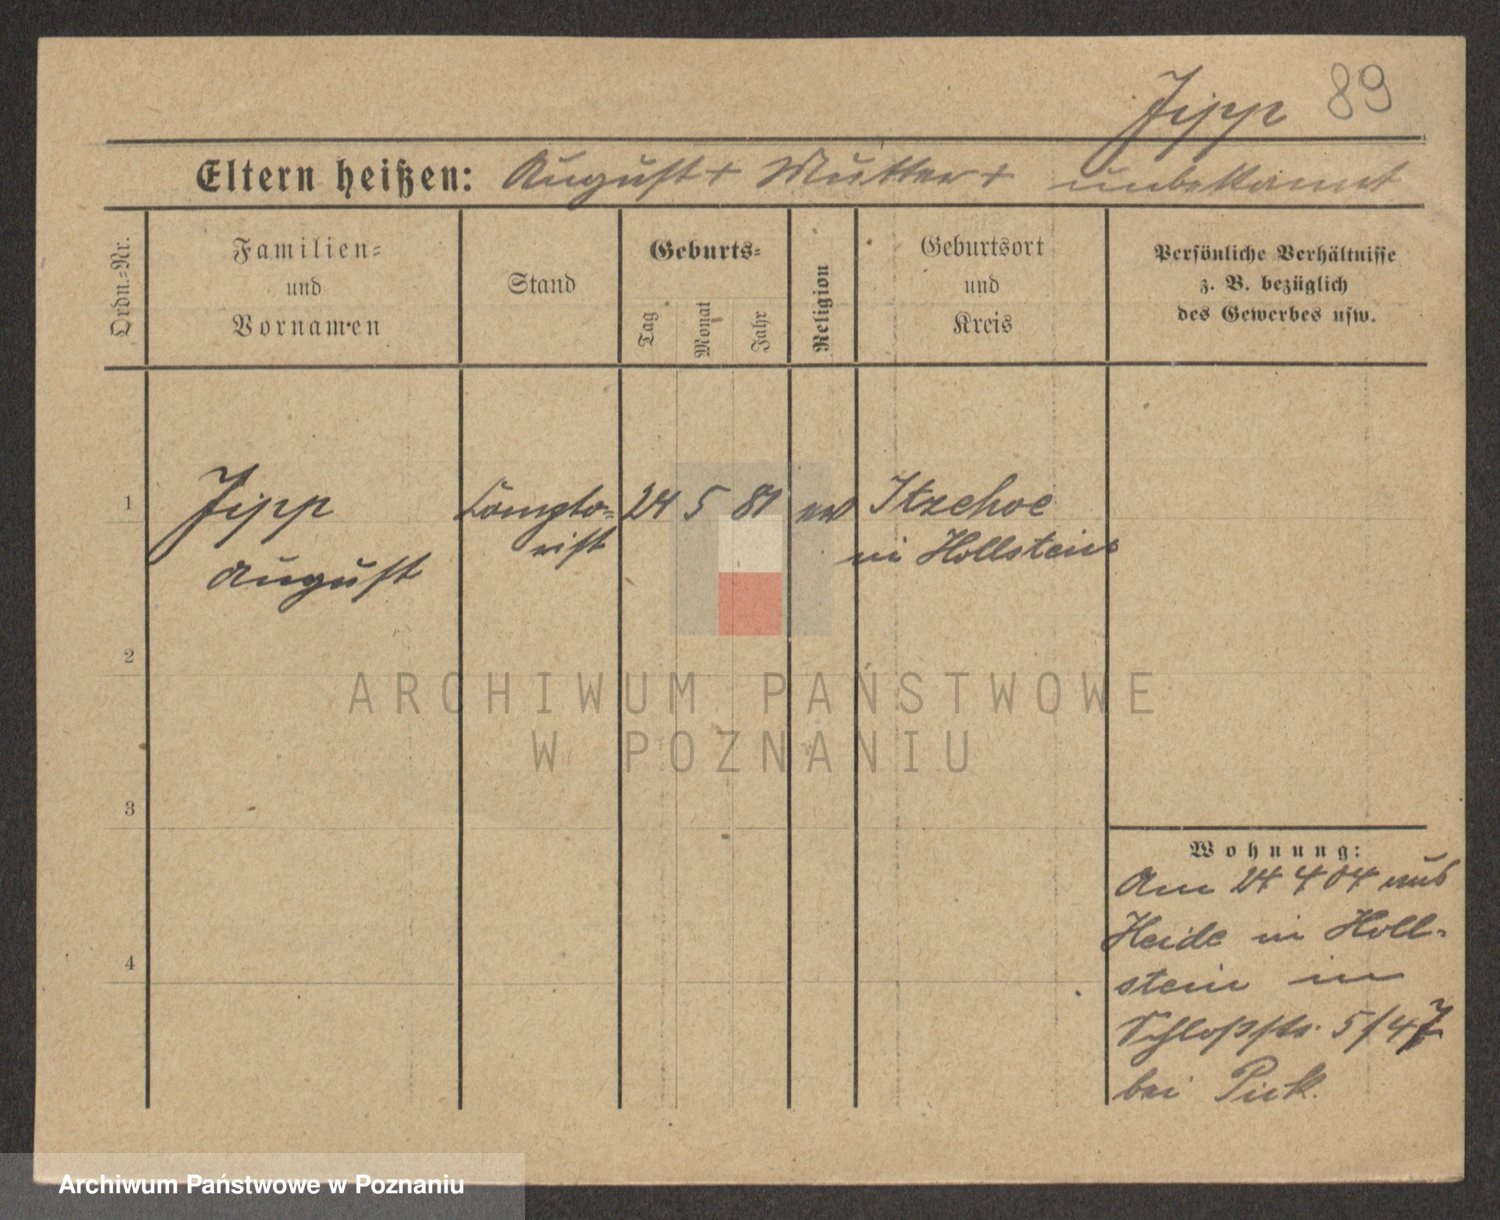 Jipp 89
Eltern heißen: August + Mutter + unbekannt
Ordn.-Nr.
Familien-
und
Vornamen
Stand
Geburts-
Tag
Monat
Jahr
Religion
Geburtsort
und
Kreis
Persönliche Verhältnisse
z. B. bezüglich
des Gewerbes usw.
1 Jipp Compto- 24 5 81 ev Itzehoe
August rist in Hollstein
2
3
4
Wohnung:
Am 24 4 04 aus
Heide in Holl-
stein in
Schloßstr. 5/47
bei Pick.
ARCHIWUM PAŃSTWOWE
W POZNANIU
Archiwum Państwowe w Poznaniu